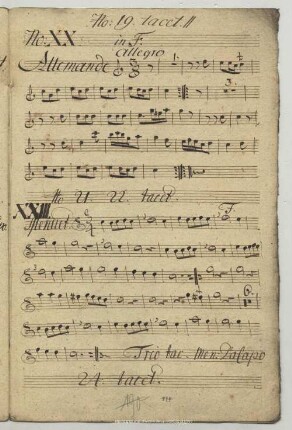 No: 19. tacet
No: XX in F.
Allegro
Allemande
No 21 22. tacet
XXIII F.
Menuet
Trio tac. Men: Da Capo
24. tacet.